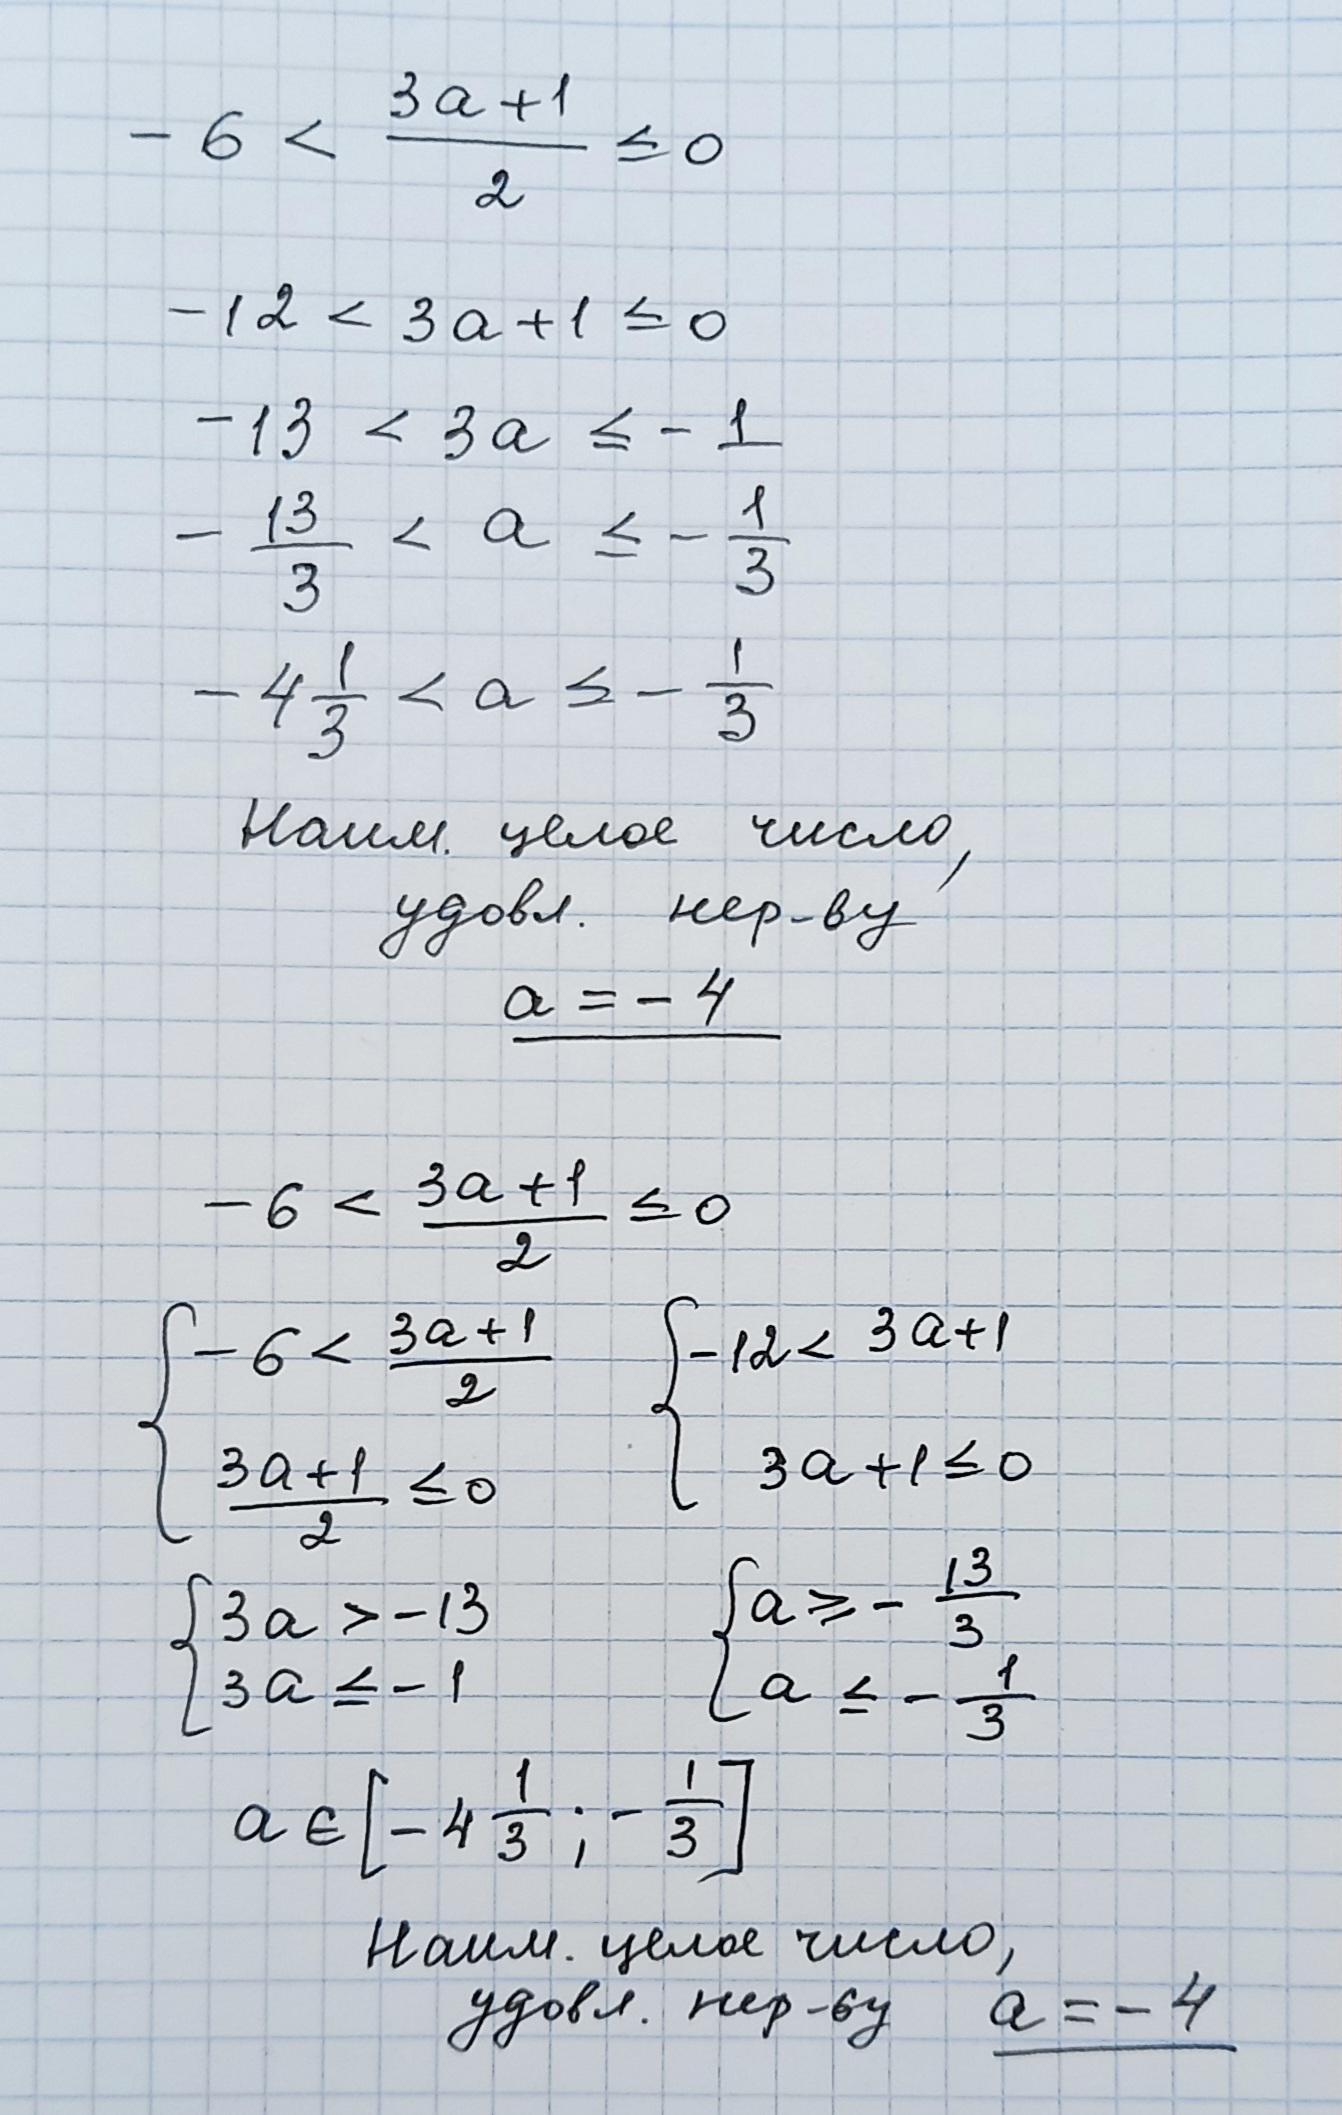 -6 < \frac{3a+1}{2} ≤ 0
-12 < 3a+1 ≤ 0
-13 < 3a ≤ -1
-\frac{13}{3} < a ≤ -\frac{1}{3}
-4\frac{1}{3} < a ≤ -\frac{1}{3}
Наим. целое число,
удовл. нер-ву
a = -4
-6 < \frac{3a+1}{2} ≤ 0
{ -6 < \frac{3a+1}{2}
\frac{3a+1}{2} ≤ 0
{ -12 < 3a+1
3a+1 ≤ 0
{ 3a > -13
3a ≤ -1
{ a ≥ -\frac{13}{3}
a ≤ -\frac{1}{3}
a ∈ [-4\frac{1}{3}; -\frac{1}{3}]
Наим. целое число,
удовл. нер-ву a = -4